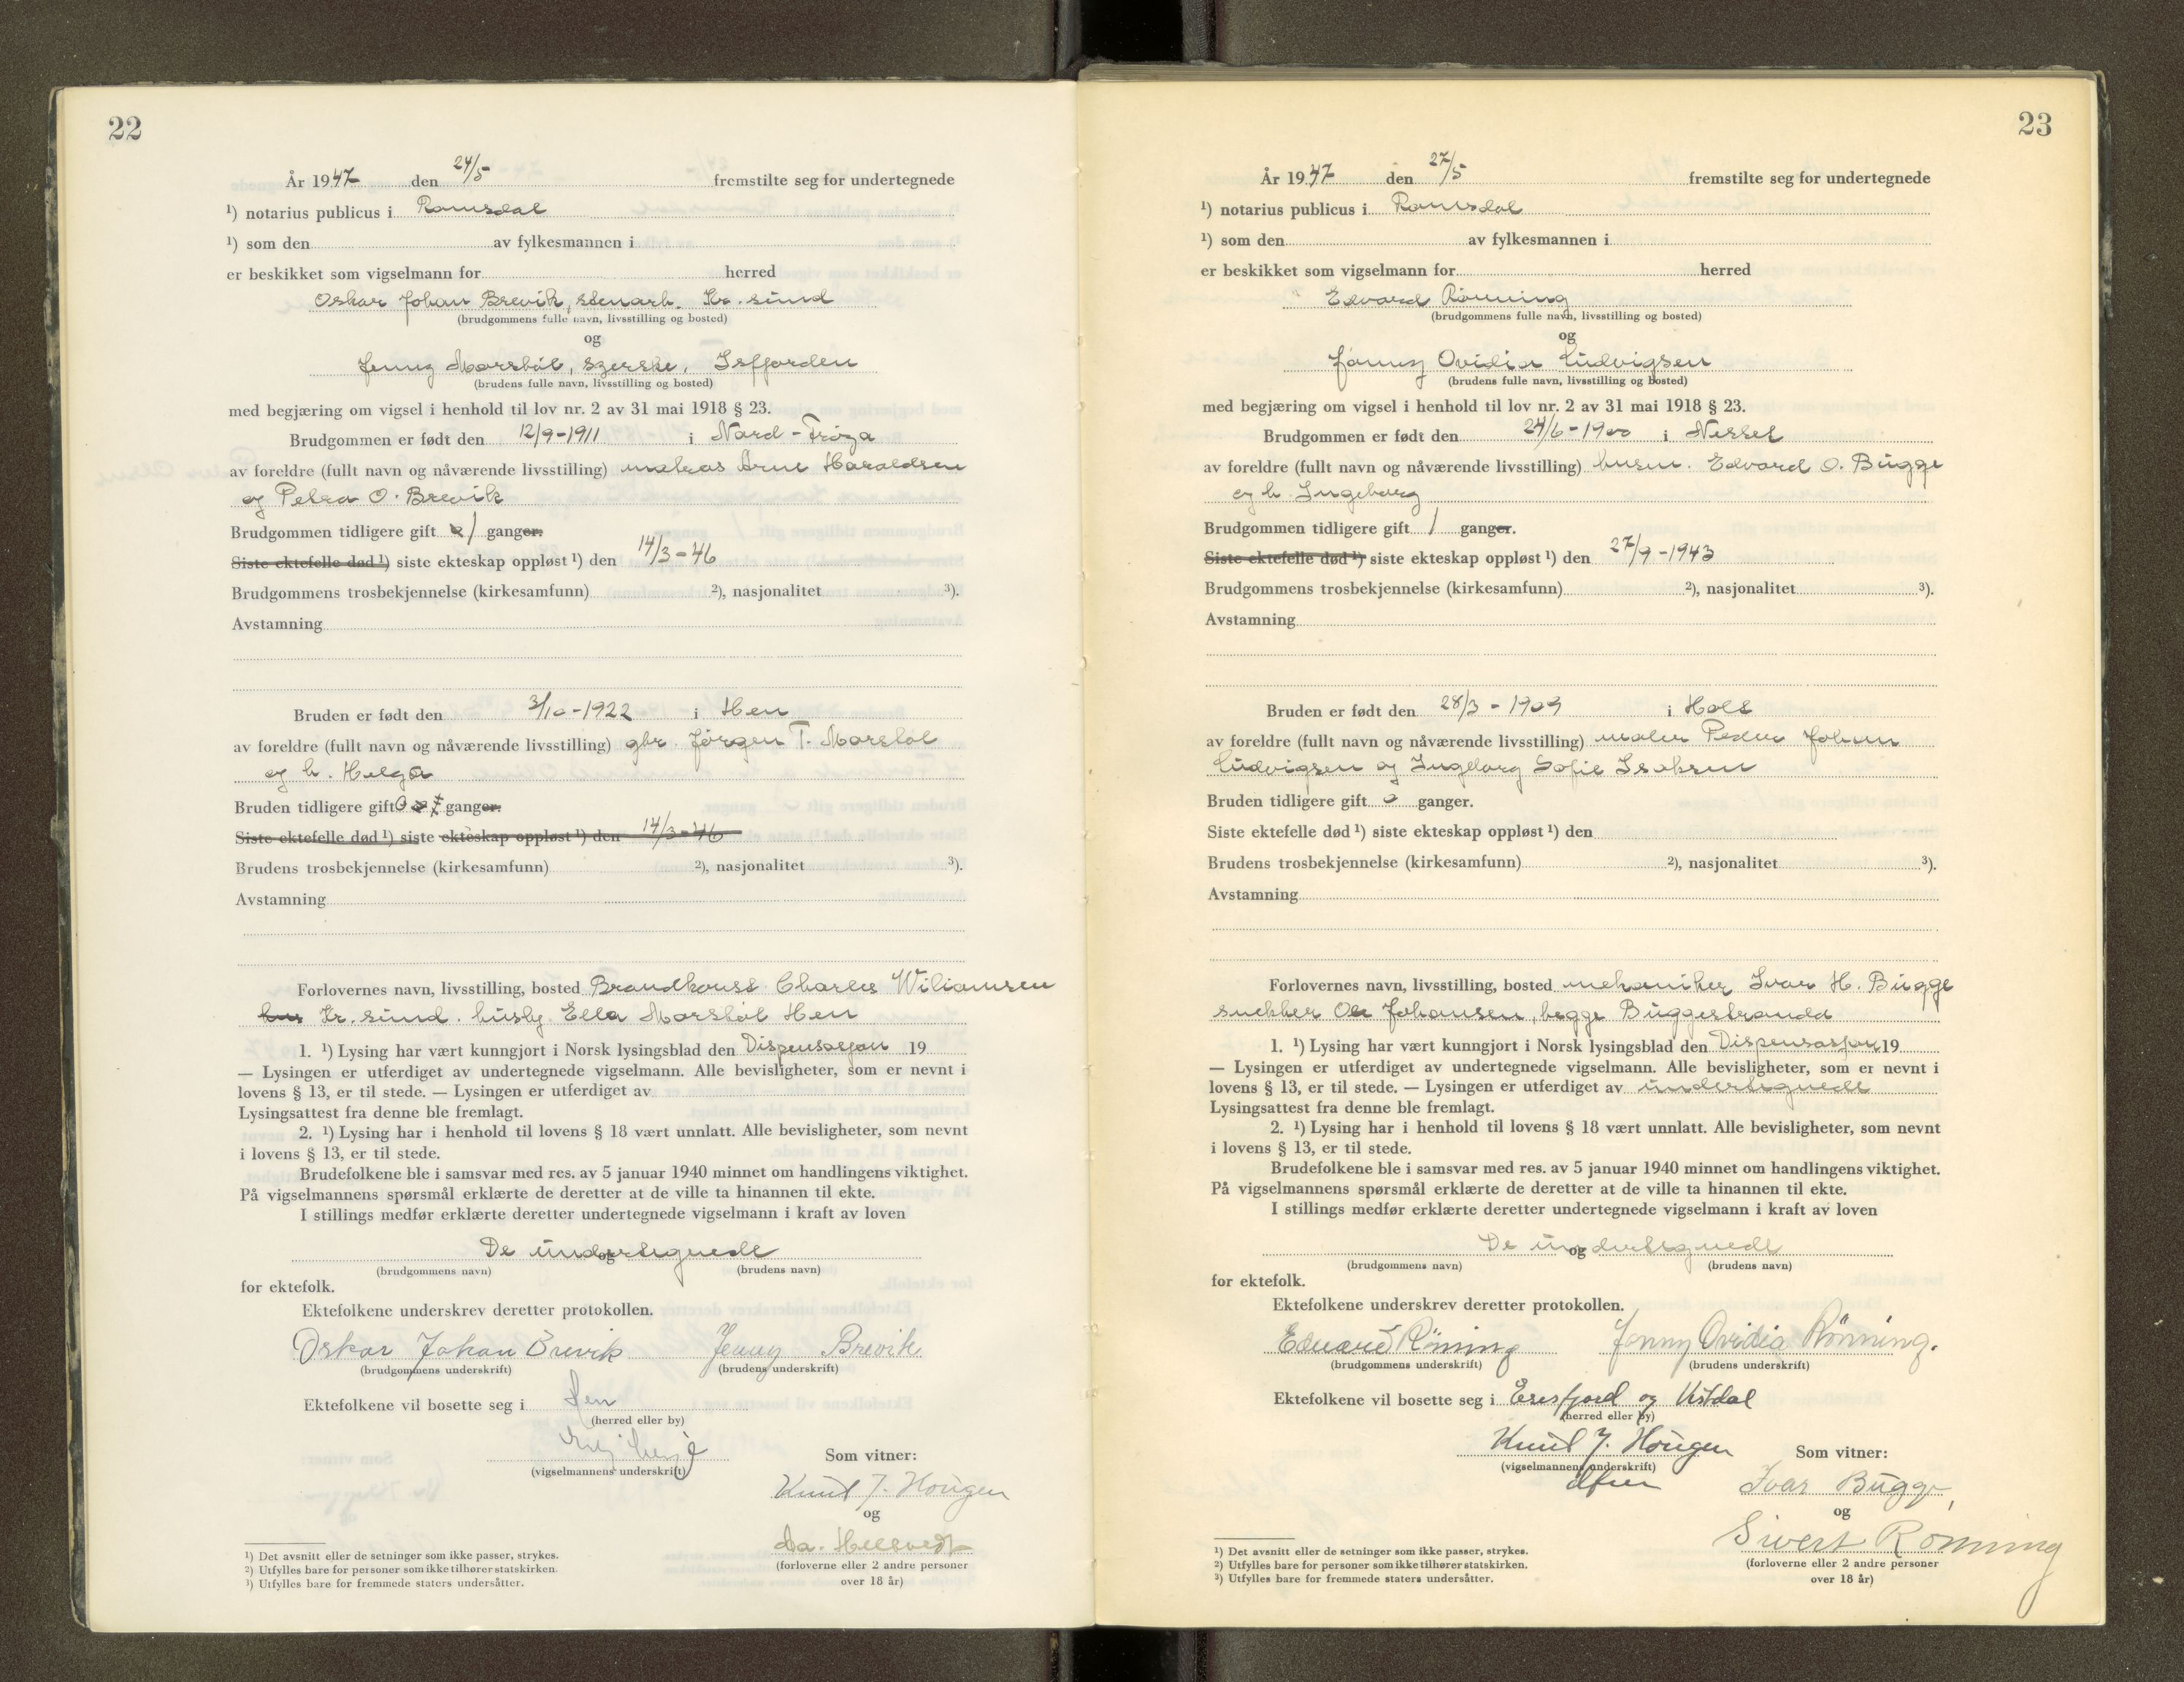 22
År 1947 den 24/5 fremstilte seg for undertegnede
¹) notarius publicus i Romsdal
¹) som den av fylkesmannen i
er beskikket som vigselmann for herred
Oskar Johan Brevik, stenarb. Kr.sund
(brudgommens fulle navn, livsstilling og bosted)
og
Jenny Morstøl, syerske, Isfjorden
(brudens fulle navn, livsstilling og bosted)
med begjæring om vigsel i henhold til lov nr. 2 av 31 mai 1918 § 23.
Brudgommen er født den 12/9-1911 i Nord-Frøya
av foreldre (fullt navn og nåværende livsstilling) matros Arne Haraldsen
og Petra O. Brevik
Brudgommen tidligere gift 1 ganger.
Siste ektefelle død ¹) siste ekteskap oppløst ¹) den 14/3-46
Brudgommens trosbekjennelse (kirkesamfunn) ²), nasjonalitet ³).
Avstamning
Bruden er født den 3/10-1922 i Hen
av foreldre (fullt navn og nåværende livsstilling) gbr Jørgen T. Morstøl
og h. Helga
Bruden tidligere gift 0 ganger.
Siste ektefelle død ¹) siste ekteskap oppløst ¹) den 14/3-46
Brudens trosbekjennelse (kirkesamfunn) ²), nasjonalitet ³).
Avstamning
Forlovernes navn, livsstilling, bosted Brandkonst Charles Wiliamsen
Kr.sund. husby. Ella Morstøl Hen
1. ¹) Lysing har vært kunngjort i Norsk lysingsblad den Dispensasjon 19
— Lysingen er utferdiget av undertegnede vigselmann. Alle bevisligheter, som er nevnt i
lovens § 13, er til stede. — Lysingen er utferdiget av
Lysingsattest fra denne ble fremlagt.
2. ¹) Lysing har i henhold til lovens § 18 vært unnlatt. Alle bevisligheter, som nevnt
i lovens § 13, er til stede.
Brudefolkene ble i samsvar med res. av 5 januar 1940 minnet om handlingens viktighet.
På vigselmannens spørsmål erklærte de deretter at de ville ta hinannen til ekte.
I stillings medfør erklærte deretter undertegnede vigselmann i kraft av loven
De undertegnede
og
(brudgommens navn) (brudens navn)
for ektefolk.
Ektefolkene underskrev deretter protokollen.
Oskar Johan Brevik Jenny Brevik
(brudgommens underskrift) (brudens underskrift)
Ektefolkene vil bosette seg i Hen
(herred eller by)
Som vitner:
(vigselmannens underskrift)
Knut J. Hougen
og
(forloverne eller 2 andre personer
over 18 år)
¹) Det avsnitt eller de setninger som ikke passer, strykes.
²) Utfylles bare for personer som ikke tilhører statskirken.
³) Utfylles bare for fremmede staters undersåtter.
23
År 1947 den 27/5 fremstilte seg for undertegnede
¹) notarius publicus i Romsdal
¹) som den av fylkesmannen i
er beskikket som vigselmann for herred
Edvard Rönning
(brudgommens fulle navn, livsstilling og bosted)
og
Jonny Ovidia Ludvigsen
(brudens fulle navn, livsstilling og bosted)
med begjæring om vigsel i henhold til lov nr. 2 av 31 mai 1918 § 23.
Brudgommen er født den 24/6-1900 i Nesset
av foreldre (fullt navn og nåværende livsstilling) husm. Edvard O. Bugge
og h. Ingeborg
Brudgommen tidligere gift 1 ganger.
Siste ektefelle død ¹) siste ekteskap oppløst ¹) den 27/9-1943
Brudgommens trosbekjennelse (kirkesamfunn) ²), nasjonalitet ³).
Avstamning
Bruden er født den 28/3-1909 i Hols
av foreldre (fullt navn og nåværende livsstilling) maler Peder Johan
Ludvigsen og Ingeborg Sofie Isaksen
Bruden tidligere gift 0 ganger.
Siste ektefelle død ¹) siste ekteskap oppløst ¹) den
Brudens trosbekjennelse (kirkesamfunn) ²), nasjonalitet ³).
Avstamning
Forlovernes navn, livsstilling, bosted mekaniker Ivar H. Bugge
snekker Ole Johansen, begge Buggestranda
1. ¹) Lysing har vært kunngjort i Norsk lysingsblad den Dispensasjon 19
— Lysingen er utferdiget av undertegnede vigselmann. Alle bevisligheter, som er nevnt i
lovens § 13, er til stede. — Lysingen er utferdiget av undertegnede
Lysingsattest fra denne ble fremlagt.
2. ¹) Lysing har i henhold til lovens § 18 vært unnlatt. Alle bevisligheter, som nevnt
i lovens § 13, er til stede.
Brudefolkene ble i samsvar med res. av 5 januar 1940 minnet om handlingens viktighet.
På vigselmannens spørsmål erklærte de deretter at de ville ta hinannen til ekte.
I stillings medfør erklærte deretter undertegnede vigselmann i kraft av loven
De undertegnede
og
(brudgommens navn) (brudens navn)
for ektefolk.
Ektefolkene underskrev deretter protokollen.
Edvard Röning Jonny Ovidia Rönning.
(brudgommens underskrift) (brudens underskrift)
Ektefolkene vil bosette seg i Eresfjord og Vistdal
(herred eller by)
Knut J. Hougen Som vitner:
(vigselmannens underskrift)
Ivar Bugge,
og
Sivert Rönning
(forloverne eller 2 andre personer
over 18 år)
¹) Det avsnitt eller de setninger som ikke passer, strykes.
²) Utfylles bare for personer som ikke tilhører statskirken.
³) Utfylles bare for fremmede staters undersåtter.